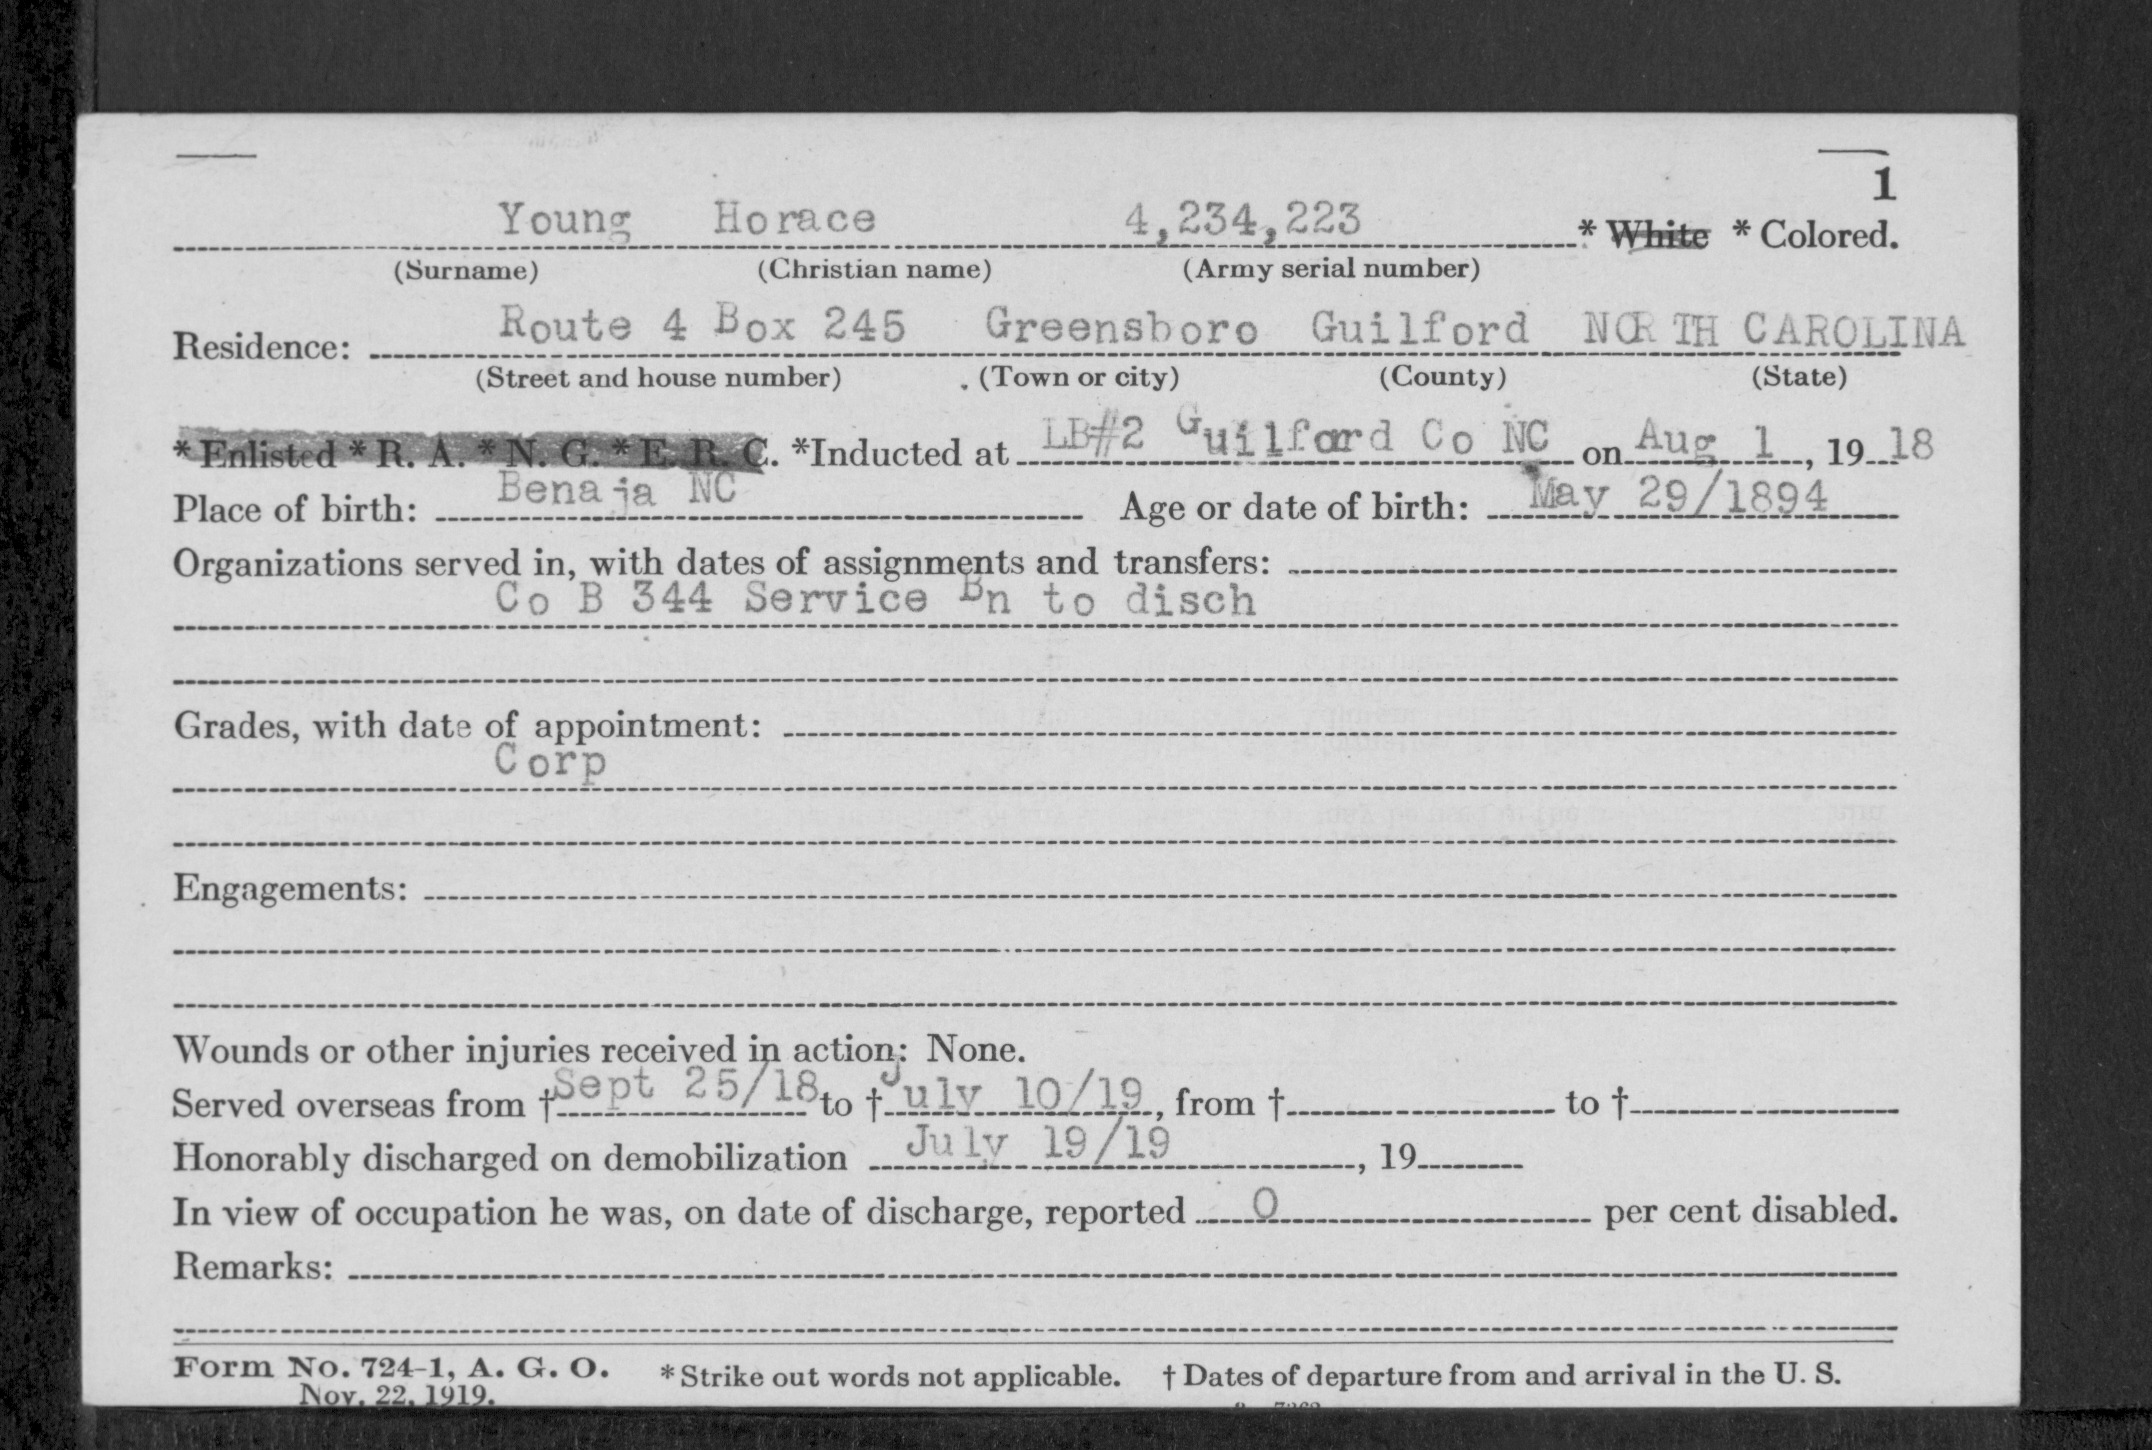 1
Young Horace 4,234,223 * White * Colored.
(Surname) (Christian name) (Army serial number)
Residence: Route 4 Box 245 Greensboro Guilford NORTH CAROLINA
(Street and house number) (Town or city) (County) (State)
* Enlisted * R. A. * N. G. * E. R. C. *Inducted at LB#2 Guilford Co NC on Aug 1, 1918
Place of birth: Benaja NC Age or date of birth: May 29/1894
Organizations served in, with dates of assignments and transfers:
Co B 344 Service Bn to disch
Grades, with date of appointment:
Corp
Engagements:
Wounds or other injuries received in action: None.
Served overseas from † Sept 25/18 to † July 10/19, from † to †
Honorably discharged on demobilization July 19/19, 19
In view of occupation he was, on date of discharge, reported 0 per cent disabled.
Remarks:
Form No. 724-1, A. G. O. * Strike out words not applicable. † Dates of departure from and arrival in the U. S.
Nov. 22, 1919.